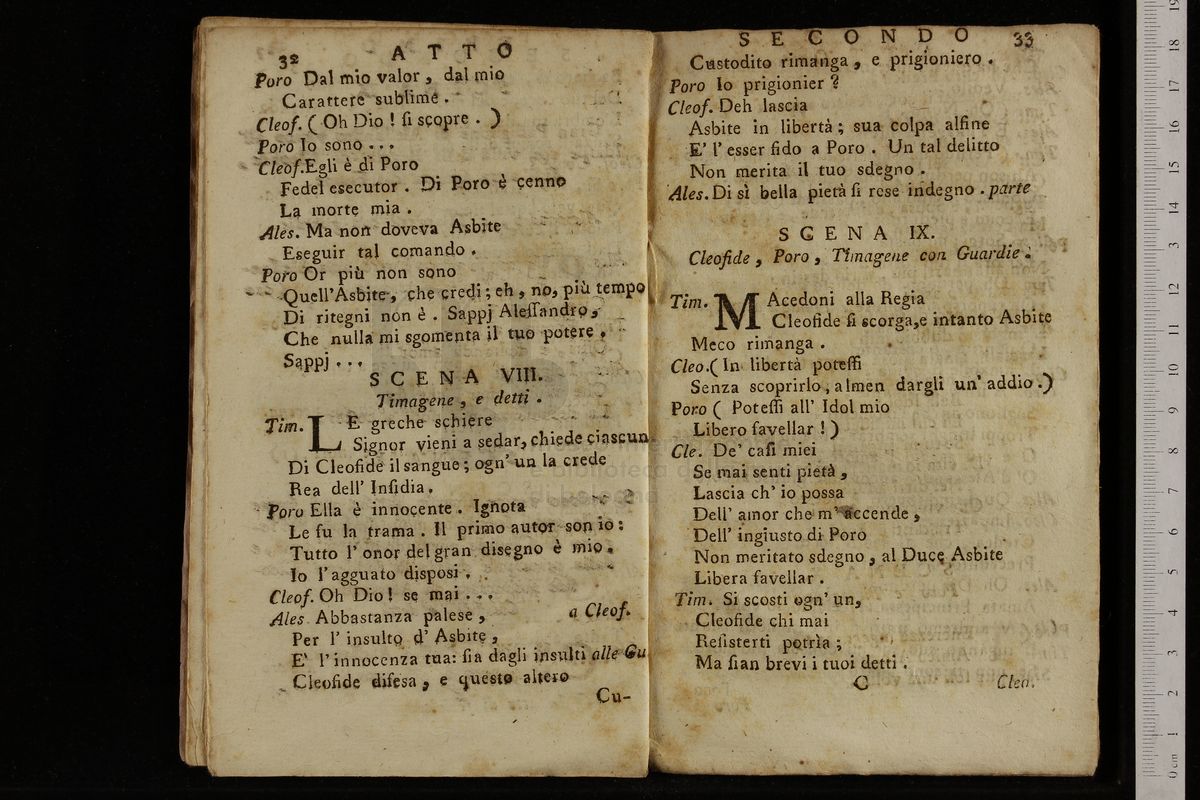 32 ATTO
Poro Dal mio valor, dal mio
Carattere sublime.
Cleof. ( Oh Dio ! ſi ſcopre . )
Poro Io sono . . .
Cleof. Egli è di Poro
Fedel esecutor . Di Poro è cenno
La morte mia .
Ales. Ma non doveva Asbite
Eseguir tal comando .
Poro Or più non sono
Quell'Asbite, che credi ; eh, no, più tempo
Di ritegni non è . Sappj Aleſſandro,
Che nulla mi sgomenta il tuo potere .
Sappj . . .
SCENA VIII.
Timagene, e detti .
Tim. LE greche schiere
Signor vieni a sedar, chiede ciascun
Di Cleofide il sangue ; ogn' un la crede
Rea dell' Inſidia.
Poro Ella è innocente . Ignota
Le fu la trama . Il primo autor son io :
Tutto l' onor del gran disegno è mio.
Io l'agguato disposi .
Cleof. Oh Dio ! se mai . . .
Ales. Abbastanza palese , a Cleof.
Per l' insulto d' Asbite ,
E' l'innocenza tua: ſia dagli insulti alle Gu
Cleofide difesa , e questo altero
Cu-
SECONDO 33
Custodito rimanga , e prigioniero .
Poro Io prigionier ?
Cleof. Deh lascia
Asbite in libertà ; sua colpa alfine
E' l' esser fido a Poro . Un tal delitto
Non merita il tuo sdegno .
Ales. Di sì bella pietà ſi rese indegno . parte
SCENA IX.
Cleofide , Poro , Timagene con Guardie .
Tim. MAcedoni alla Regia
Cleofide ſi scorga, e intanto Asbite
Meco rimanga .
Cleo. ( In libertà poteſſi
Senza scoprirlo, almen dargli un' addio .)
Poro ( Poteſſi all' Idol mio
Libero favellar ! )
Cle. De' caſi miei
Se mai senti pietà ,
Lascia ch' io possa
Dell' amor che m' accende ,
Dell' ingiusto di Poro
Non meritato sdegno , al Duce Asbite
Libera favellar .
Tim. Si scosti ogn' un,
Cleofide chi mai
Reſisterti potrìa ;
Ma ſian brevi i tuoi detti .
C Cleo.